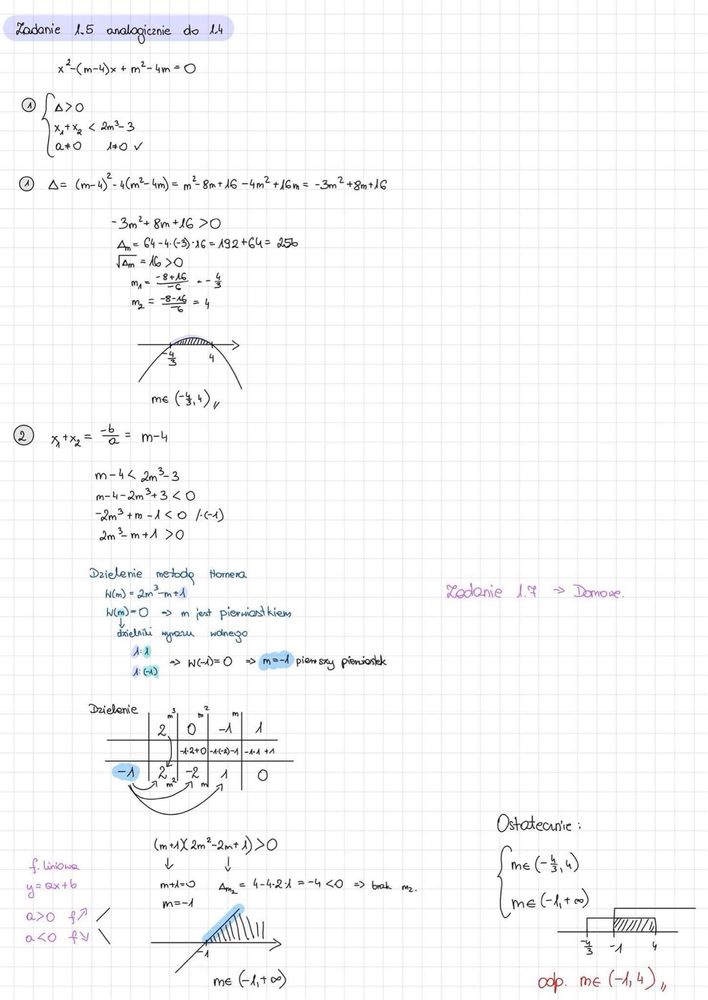 Zadanie 1.5 analogicznie do 1.4
x²-(m-4)x + m²-4m = 0
① Δ>0
x₁+x₂ < 2m³-3
a≠0 1≠0 ✓
① Δ= (m-4)²-4(m²-4m) = m²-8m+16-4m²+16m = -3m²+8m+16
-3m²+8m+16 >0
Δm = 64-4·(-3)·16 = 192+64 = 256
√Δm = 16 >0
m₁ = (-8+16)/-6 = -4/3
m₂ = (-8-16)/-6 = 4
-4/3 4
m∈ (-4/3, 4)„
② x₁+x₂ = -b/a = m-4
m-4 < 2m³-3
m-4-2m³+3 < 0
-2m³+m-1 < 0 /·(-1)
2m³-m+1 >0
Dzielenie metodą Hornera
W(m) = 2m³-m+1
W(m)=0 => m jest pierwiastkiem
↓
dzielniki wyrazu wolnego
1:1
1:(-1)
=> W(-1)=0 => m=-1 pierwszy pierwiastek
Zadanie 1.7 → Domowe.
Dzielenie
m³ m² m
2 0 -1 1
-1·2+0 -1·(-2)-1 -1·1+1
-1 2 -2 1 0
m² m
(m+1)(2m²-2m+1)>0
↓ ↓
m+1=0 Δm₂ = 4-4·2·1 = -4 <0 => brak m₂.
m=-1
-1
m∈ (-1,+∞)
f. liniowa
y = ax+b
a>0 f↗ /
a<0 f↘ \
Ostatecznie:
m∈ (-4/3, 4)
m∈ (-1,+∞)
-4/3 -1 4
odp. m∈ (-1, 4)„